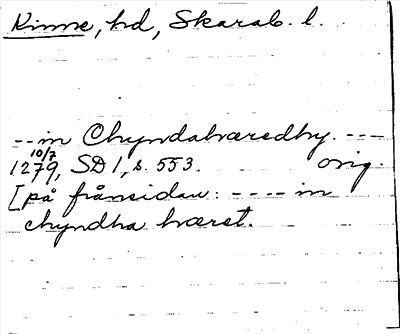 Kinne, hd, Skarab. l.
--in Chyndahæredhy. ---
10/7
1279, SD 1, s. 553. orig.
[på frånsidan: ---- in
chyndha hæret.